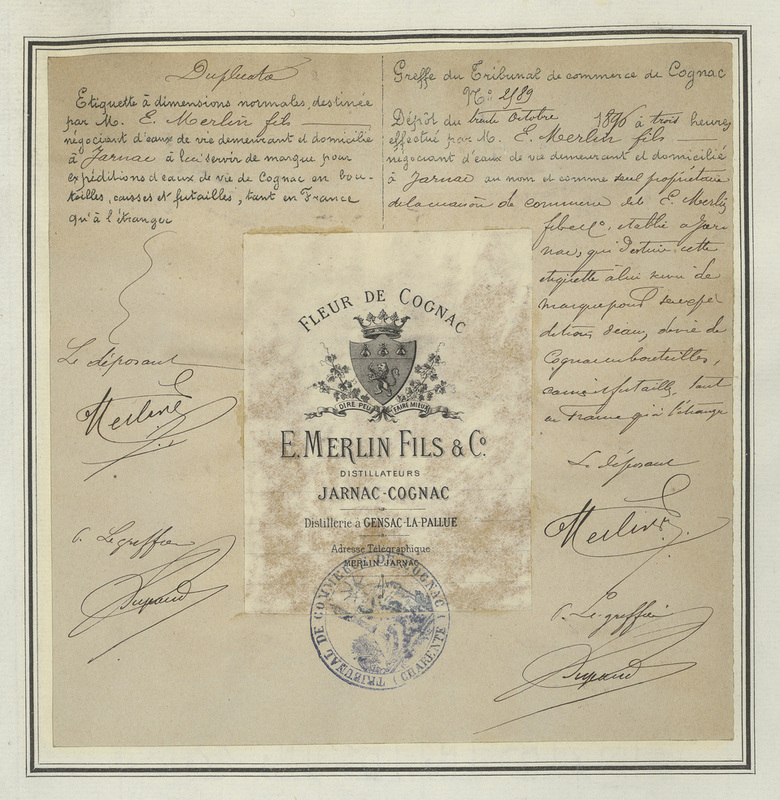 Duplicata
Etiquette à dimensions normales destinée
par M. E. Merlin fils
négociant d'eaux de vie demeurant et domicilié
à Jarnac à lui servir de marque pour
expéditions d'eaux de vie de Cognac en bou-
teilles, caisses et futailles, tant en France
qu'à l'étranger
Le déposant
Merlin
Le greffier
Greffe du Tribunal de commerce de Cognac
No. 2589
Dépôt du trente Octobre 1896 à trois heures
effectué par M. E. Merlin fils
négociant d'eaux de vie demeurant et domicilié
à Jarnac au nom et comme seul propriétaire
de la maison de commerce de E. Merlin
fils et Co, établie à Jar-
nac, qui destine cette
etiquette à lui servir de
marque pour ses expé-
ditions d'eaux de vie de
Cognac en bouteilles,
caisses et futailles, tant
en France qu'à l'étranger
Le déposant
Merlin
Le greffier
FLEUR DE COGNAC
DIRE PEU FAIRE MIEUX
E. MERLIN FILS & Co.
DISTILLATEURS
JARNAC-COGNAC
Distillerie à GENSAC-LA-PALLUE
Adresse Télégraphique
MERLIN JARNAC
TRIBUNAL DE COMMERCE DE COGNAC (CHARENTE)